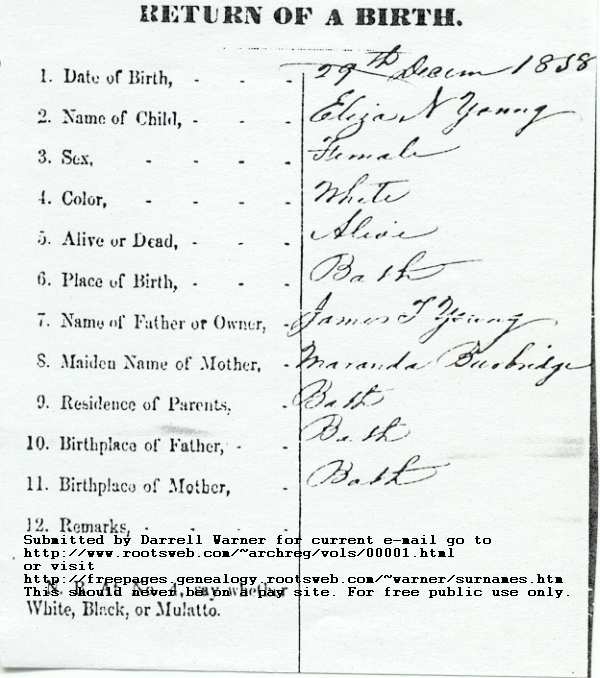 RETURN OF A BIRTH.
1. Date of Birth, - - - 29th Decem 1858
2. Name of Child, - - - Eliza N Young
3. Sex, - - - - Female
4. Color, - - - - White
5. Alive or Dead, - - - Alive
6. Place of Birth, - - - Bath
7. Name of Father or Owner, - James T Young
8. Maiden Name of Mother, - Maranda
9. Residence of Parents, - Bath
10. Birthplace of Father, - - Bath
11. Birthplace of Mother, - Bath
12. Remarks, - - - -
Submitted by Darrell Warner for current e-mail go to
http://www.rootsweb.com/~archreg/vols/00001.html
or visit
http://freepages.genealogy.rootsweb.com/~warner/surnames.htm
N. B. At No. 4, say whether
This should never be on a pay site. For free public use only.
White, Black, or Mulatto.